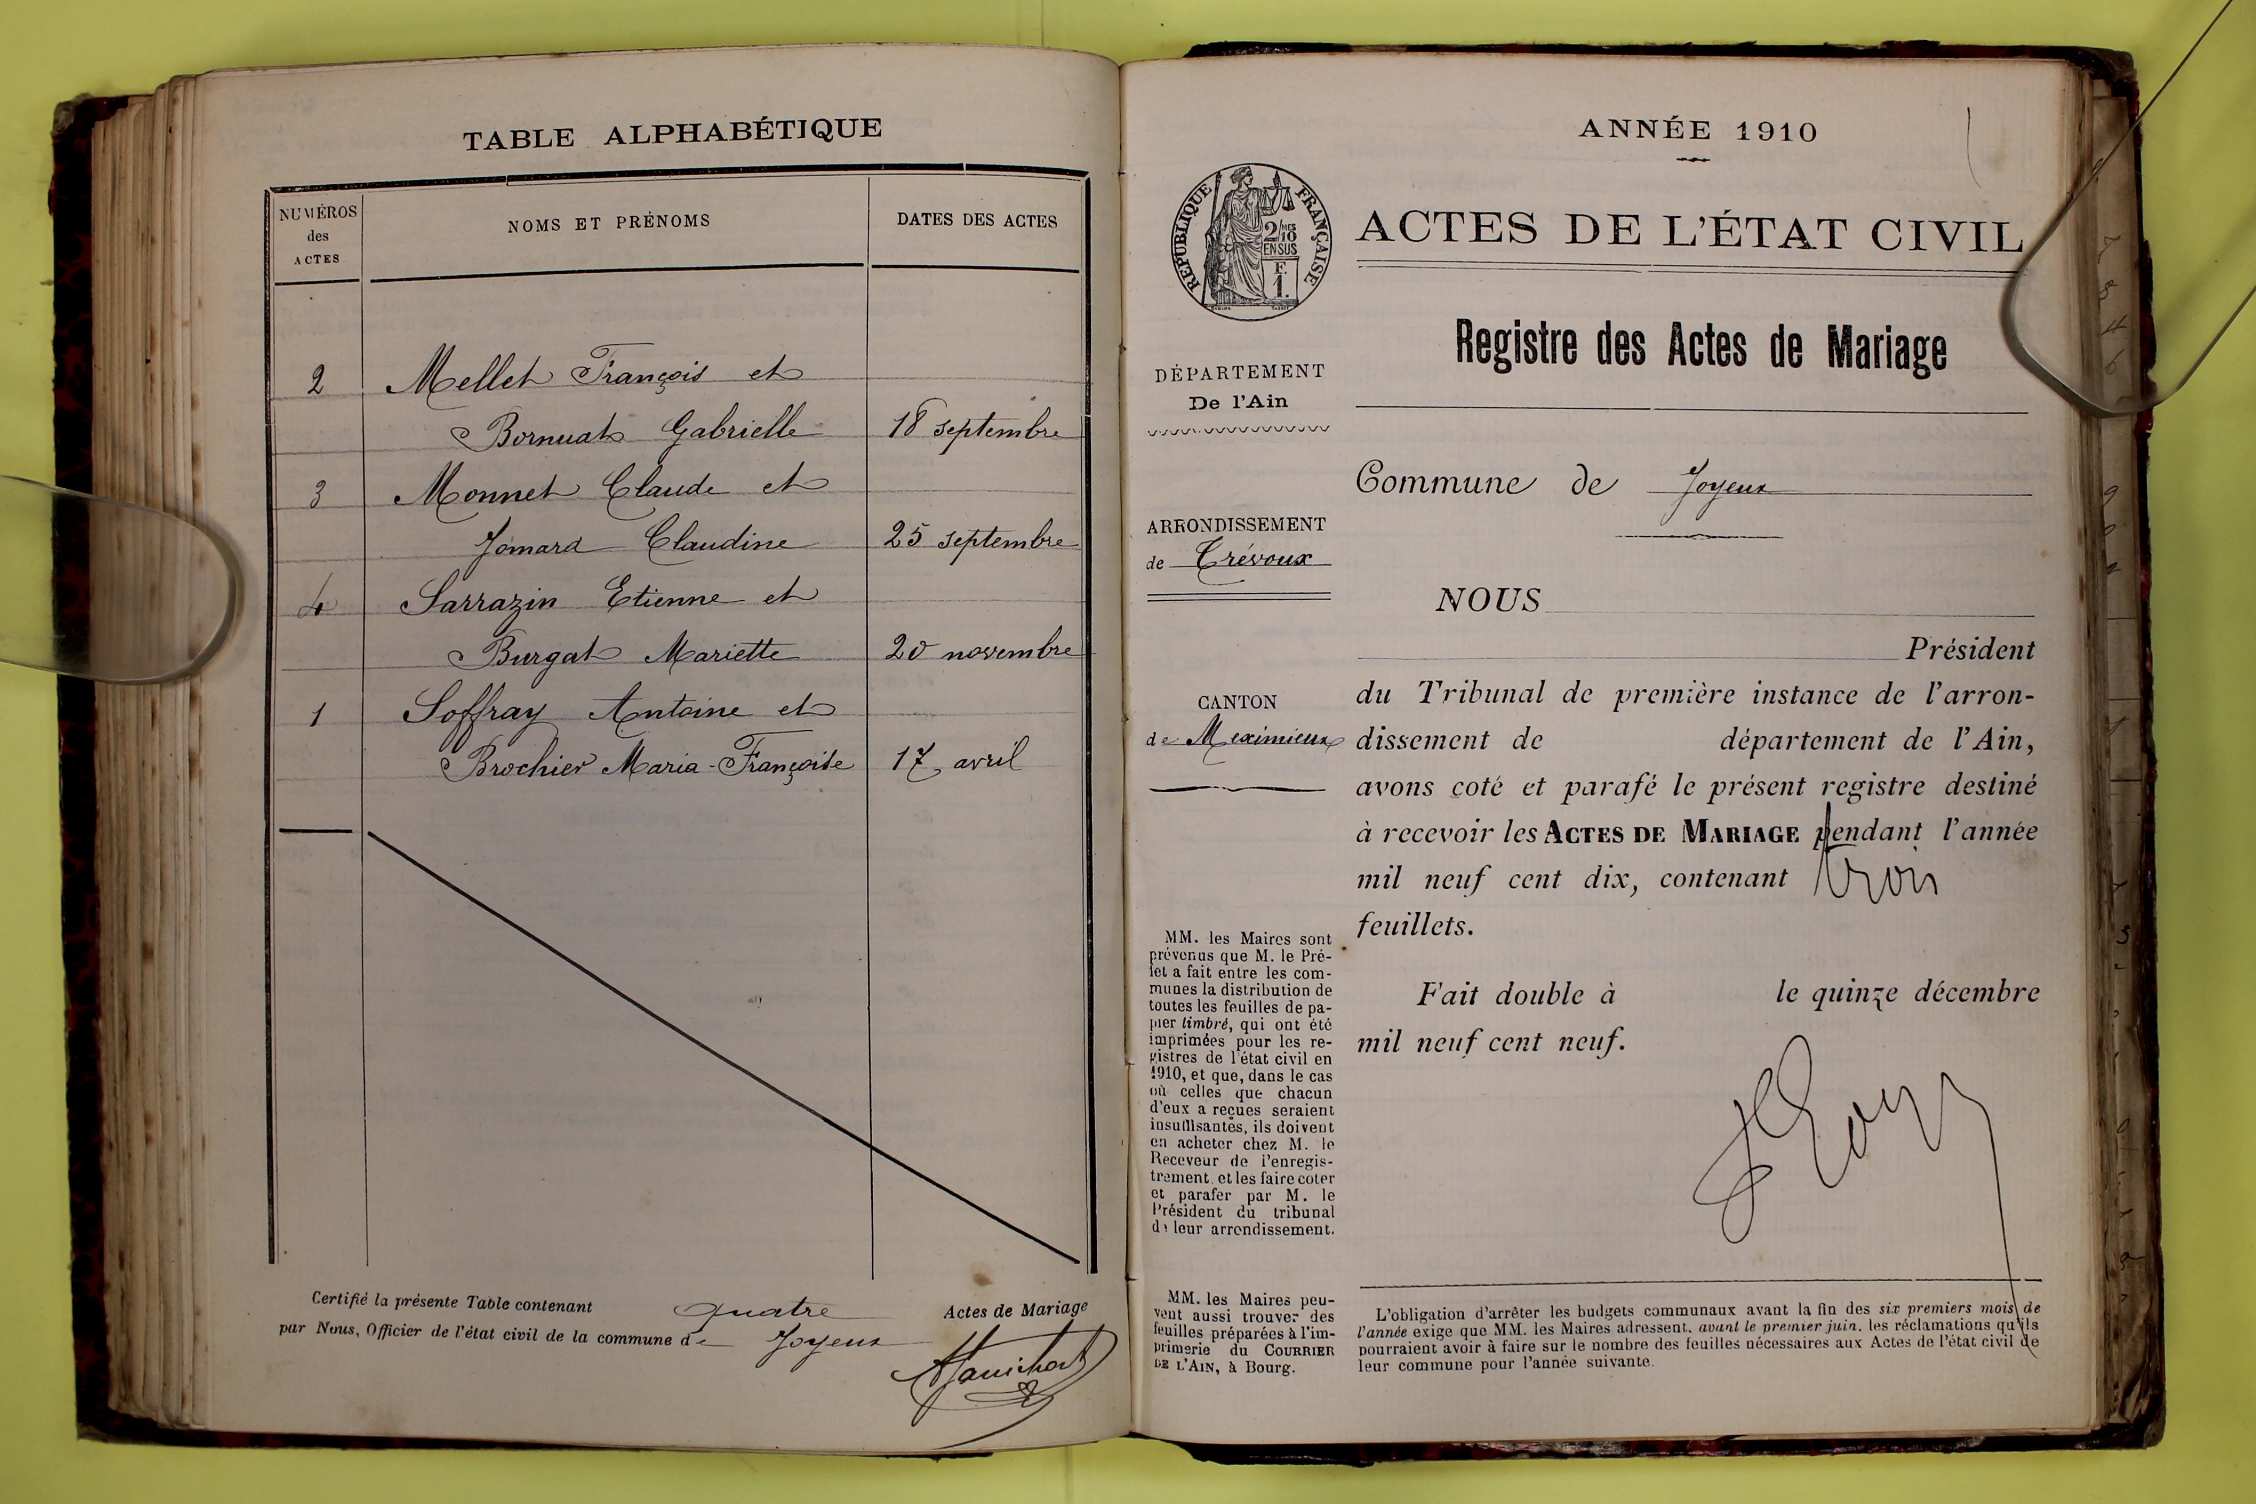 TABLE ALPHABÉTIQUE
NUMÉROS
des
ACTES
NOMS ET PRÉNOMS
DATES DES ACTES
2 Mellet François et
Bornuat Gabrielle 18 septembre
3 Monnet Claude et
Jomard Claudine 25 septembre
4 Sarrazin Etienne et
Burgat Mariette 20 novembre
1 Soffray Antoine et
Brochier Maria-Françoise 17 avril
Certifié la présente Table contenant quatre Actes de Mariage
par Nous, Officier de l'état civil de la commune de Joyeux
ANNÉE 1910
RÉPUBLIQUE FRANÇAISE
2/10 MES
EN SUS
F.
1.
ACTES DE L'ÉTAT CIVIL
Registre des Actes de Mariage
DÉPARTEMENT
De l'Ain
ARRONDISSEMENT
de Trévoux
CANTON
de Meximieux
MM. les Maires sont
prévenus que M. le Pré-
fet a fait entre les com-
munes la distribution de
toutes les feuilles de pa-
pier timbré, qui ont été
imprimées pour les re-
gistres de l'état civil en
1910, et que, dans le cas
où celles que chacun
d'eux a reçues seraient
insuffisantes, ils doivent
en acheter chez M. le
Receveur de l'enregis-
trement et les faire coter
et parafer par M. le
Président du tribunal
de leur arrondissement.
MM. les Maires peu-
vent aussi trouver des
feuilles préparées à l'im-
primerie du COURRIER
DE L'AIN, à Bourg.
Commune de Joyeux
NOUS
Président
du Tribunal de première instance de l'arron-
dissement de département de l'Ain,
avons coté et parafé le présent registre destiné
à recevoir les ACTES DE MARIAGE pendant l'année
mil neuf cent dix, contenant trois
feuillets.
Fait double à le quinze décembre
mil neuf cent neuf.
L'obligation d'arrêter les budgets communaux avant la fin des six premiers mois de
l'année exige que MM. les Maires adressent, avant le premier juin, les réclamations qu'ils
pourraient avoir à faire sur le nombre des feuilles nécessaires aux Actes de l'état civil de
leur commune pour l'année suivante.